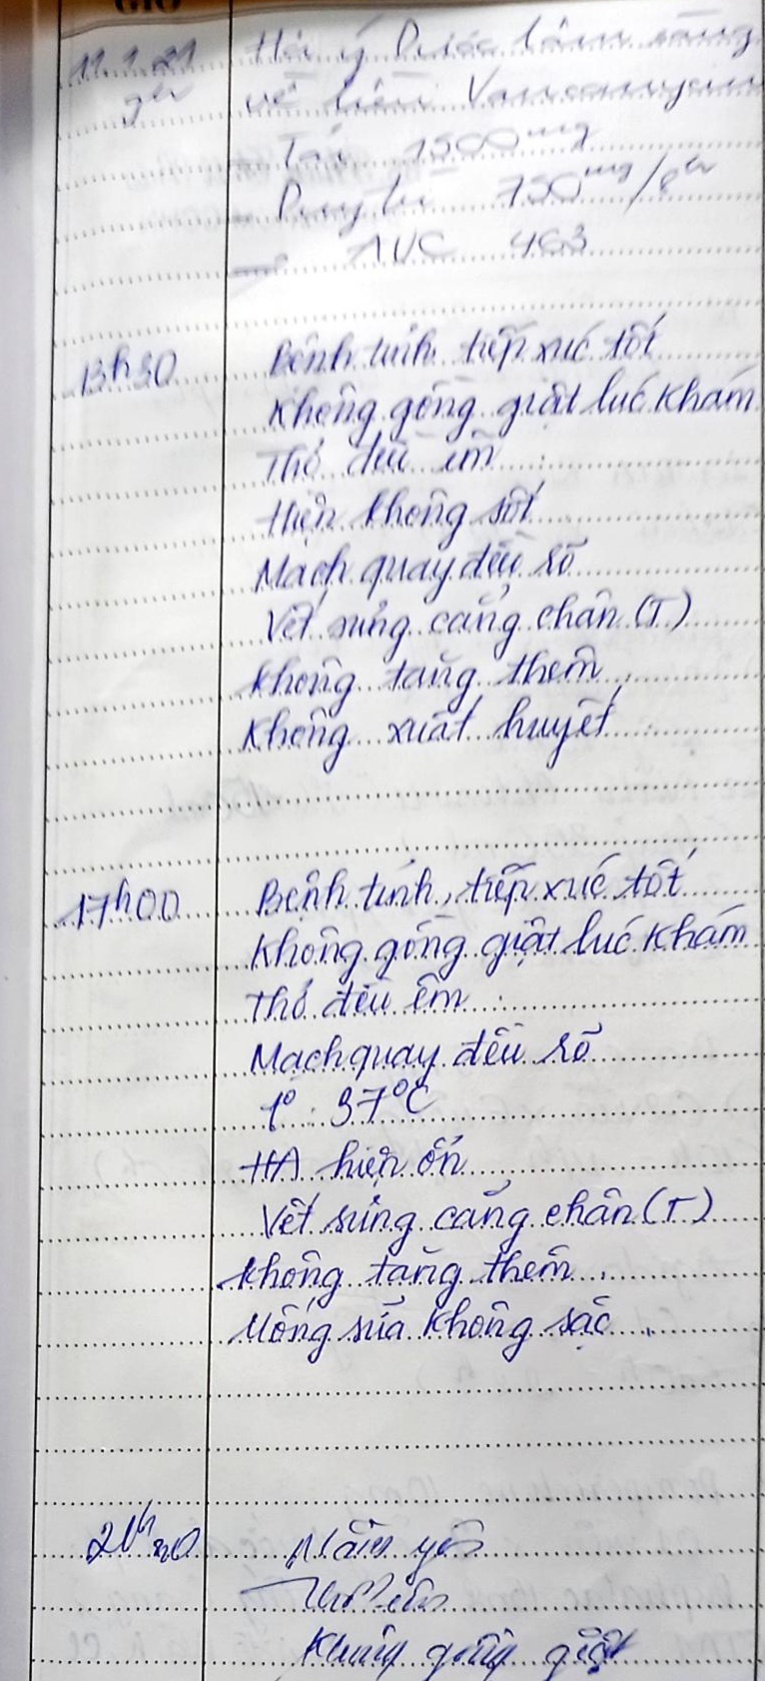 GIỜ
11.1.21 Hội ý Dược lâm sàng
9h về liều Vancomycin
Tải 1500mg
Duy trì 750mg/8h
AUC 463
13h30 Bệnh tỉnh, tiếp xúc tốt
Không gồng giật lúc khám
Thở đều êm
Hiện không sốt
Mạch quay đều rõ
Vết sưng cẳng chân (T)
không tăng thêm
Không xuất huyết
17h00 Bệnh tỉnh, tiếp xúc tốt
Không gồng giật lúc khám
Thở đều êm
Mạch quay đều rõ
t° : 37°C
HA hiện ổn
Vết sưng cẳng chân (T)
không tăng thêm
Uống sữa không sặc
Nằm yên
Thở êm
Không gồng giật